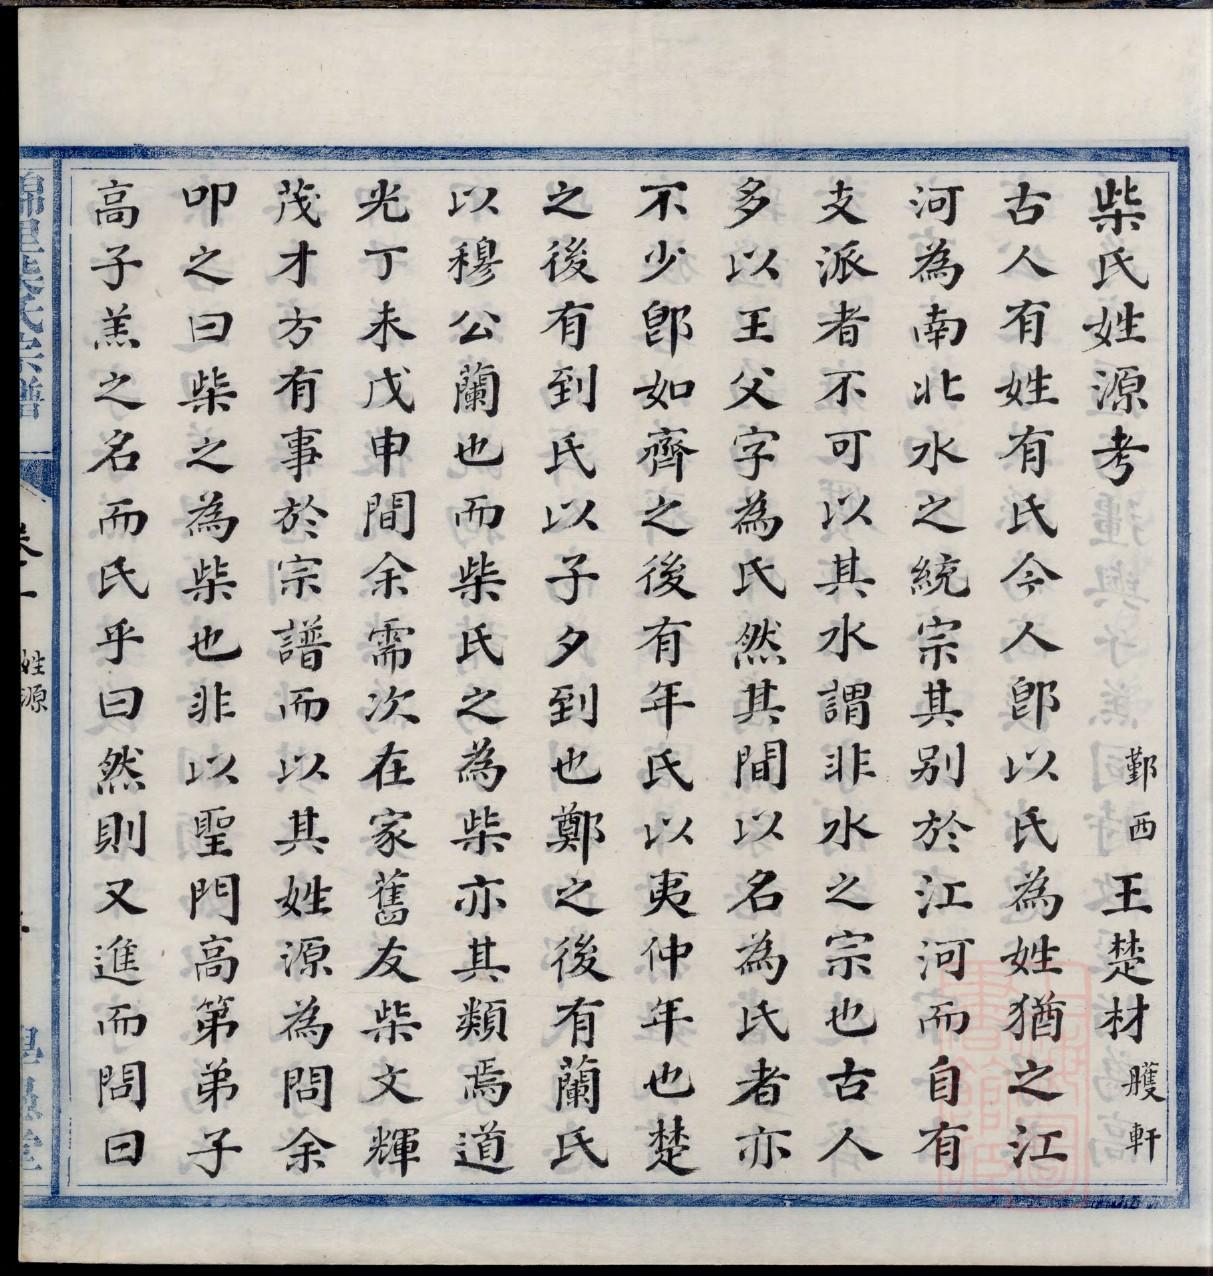 柴氏姓源考
鄞西 王楚材 艧軒
古人有姓有氏今人卽以氏為姓猶之江
河為南北水之統宗其別於江河而自有
支派者不可以其水謂非水之宗也古人
多以王父字為氏然其間以名為氏者亦
不少卽如齊之後有年氏以夷仲年也楚
之後有到氏以子夕到也鄭之後有蘭氏
以穆公蘭也而柴氏之為柴亦其類焉道
光丁未戊申間余需次在家舊友柴文輝
茂才方有事於宗譜而以其姓源為問余
叩之曰柴之為柴也非以聖門高第弟子
高子羔之名而氏乎曰然則又進而問曰
柴氏宗譜
卷一
姓源